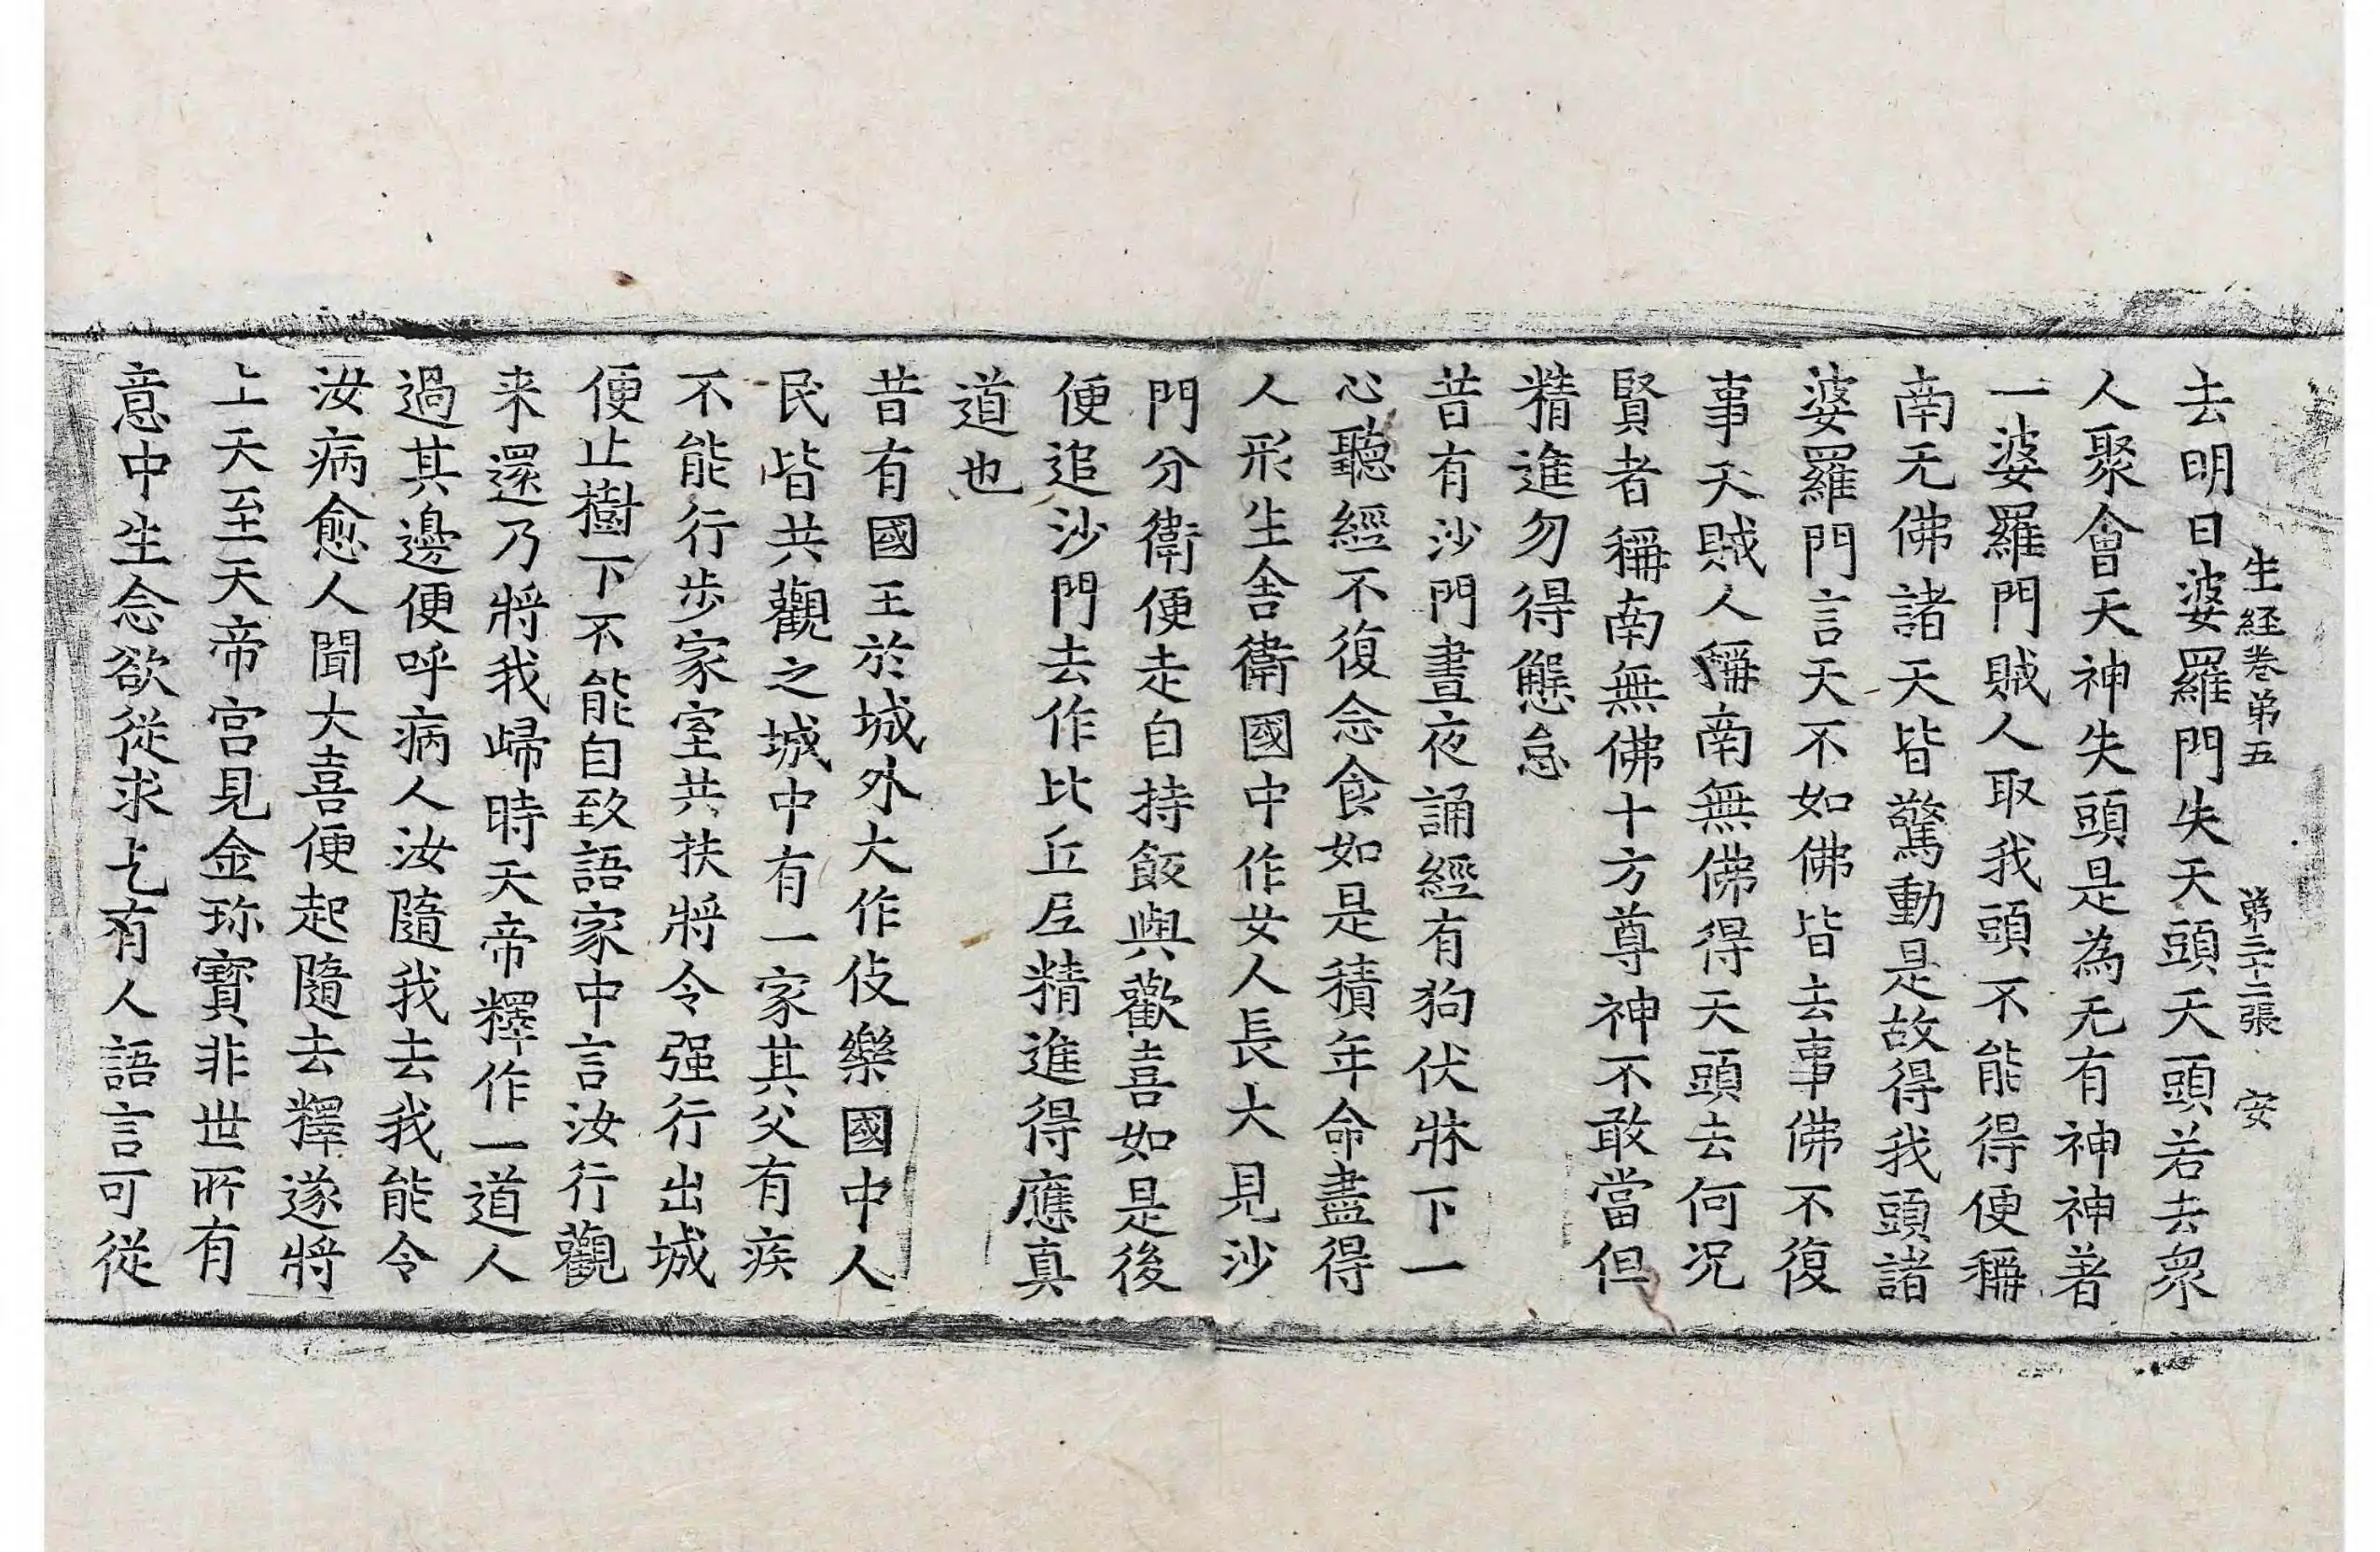 生経巻第五　第三十二張　安
去明日婆羅門失天頭天頭若去衆
人聚會天神失頭是為无有神神著
一婆羅門賊人取我頭不能得便稱
南无佛諸天皆驚動是故得我頭諸
婆羅門言天不如佛皆去事佛不復
事天賊人稱南無佛得天頭去何况
賢者稱南無佛十方尊神不敢當但
精進勿得懈怠
昔有沙門晝夜誦經有狗伏牀下一
心聽經不復念食如是積年命盡得
人形生舍衛國中作女人長大見沙
門分衛便走自持飯與歡喜如是後
便追沙門去作比丘𡰱精進得應真
道也
昔有國王於城外大作伎樂國中人
民皆共觀之城中有一家其父有疾
不能行步家室共扶將令强行出城
便止樹下不能自致語家中言汝行觀
来還乃將我歸時天帝釋作一道人
過其邊便呼病人汝隨我去我能令
汝病愈人聞大喜便起隨去釋遂將
上天至天帝宫見金珎寶非世所有
意中生念欲從求乞有人語言可從